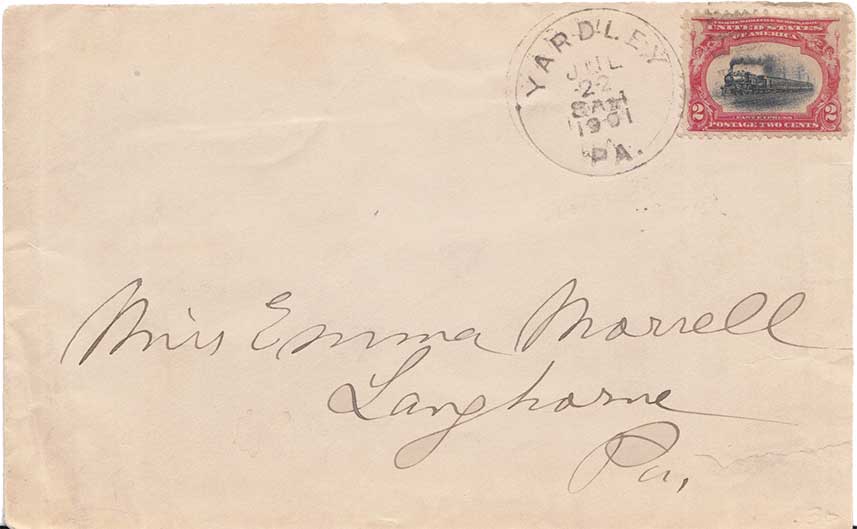 YARDLEY
JUL
22
8 AM
1901
PA.
UNITED STATES
OF AMERICA
2 2
FAST EXPRESS
POSTAGE TWO CENTS
Miss Emma Morrell
Langhorne
Pa.